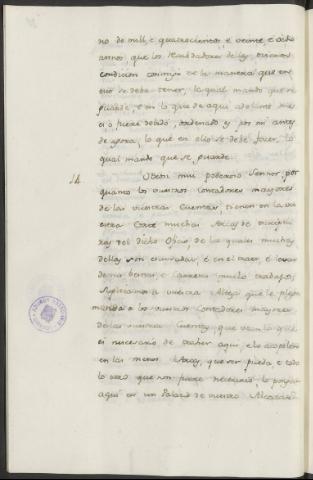 no de mill, e quatrocientos, e veinte, e ocho
annos, que los recabdadores de los dineros
condicion conmigo de la manera que en
ello se debe tener, lo qual mando que se
guarde, e en lo que de aqui adelante me
ordenado e por mi antes
de agora, lo que en ello se debe facer, lo
qual mando que se guarde.
14 Otrosi mui poderoso Sennor, por
quanto los vuestros Contadores mayores
de las vuestras Cuentas, tienen en la vu
estra Corte muchas Arcas de
del dicho Oficio de las quales muchas
dellas son e en el traer, e levar
bestias, e Carretas mucho trabajo,
Suplicamos a vuestra Alteza que le plega
mandar a los vuestros Contadores mayores
de las vuestras Cuentas, que vean lo que
es necesario de traher aqui, e lo
en las menos Arcas, que ser pueda, e todo
lo otro que non fuere necesario, lo pongan
aqui en un Palacio de vuestro Alcazar